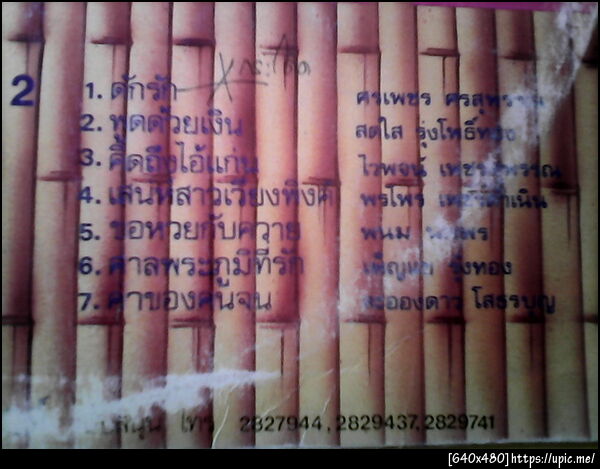 2
1. ดักรัก ศรเพชร ศรสุพรรณ
2. พูดด้วยเงิน สดใส รุ่งโพธิ์ทอง
3. คิดถึงไอ้แก่น ไวพจน์ เพชรสุพรรณ
4. เสน่ห์สาวเวียงพิงค์ พรไพร เพชรดำเนิน
5. ขอหวยกับควาย พนม นพพร
6. ศาลพระภูมิที่รัก เพ็ญนภา รุ่งทอง
7. ค่าของคนจน ละอองดาว โสธรบุญ
โทร 2827944, 2829437, 2829741
[640x480]https://upic.me/